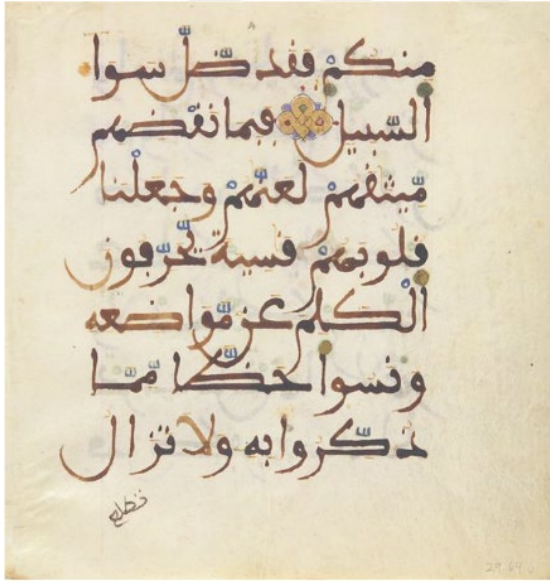 منكم فقد ضلّ سوا
السّبيل فبما نقضهم
مّيثقهم لعنّهم وجعلنا
قلوبهم قسية يّحرّفون
الكلم عن مّواضعه
ونسوا حظّا مّمّا
ذكّروا به ولا تزال
تطلع